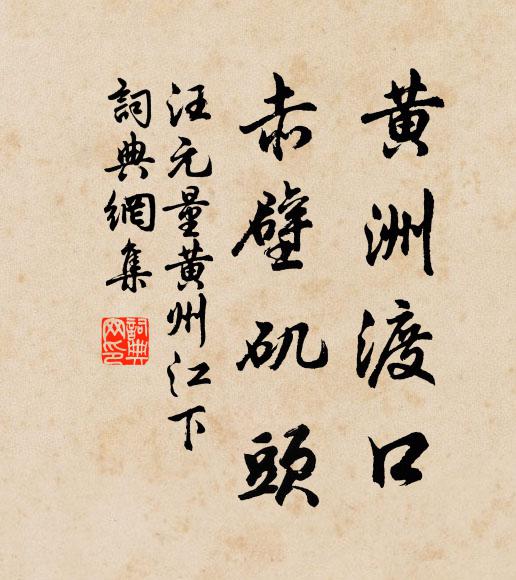 黄洲渡口
赤壁矶頭
汪元量黄州江下
詞典網集
詞典網印